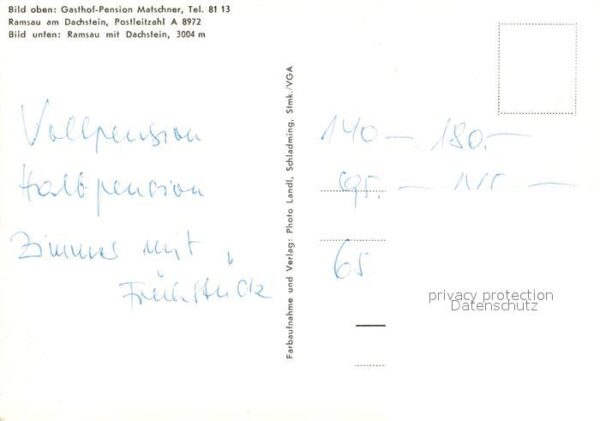 Bild oben: Gasthof-Pension Matschner, Tel. 81 13
Ramsau am Dachstein, Postleitzahl A 8972
Bild unten: Ramsau mit Dachstein, 3004 m
Vollpension 140 — 180.—
Halbpension 95. — 115 —
Zimmer mit
Frühstück 65
Farbaufnahme und Verlag: Photo Landl, Schladming, Stmk./VGA
privacy protection
Datenschutz